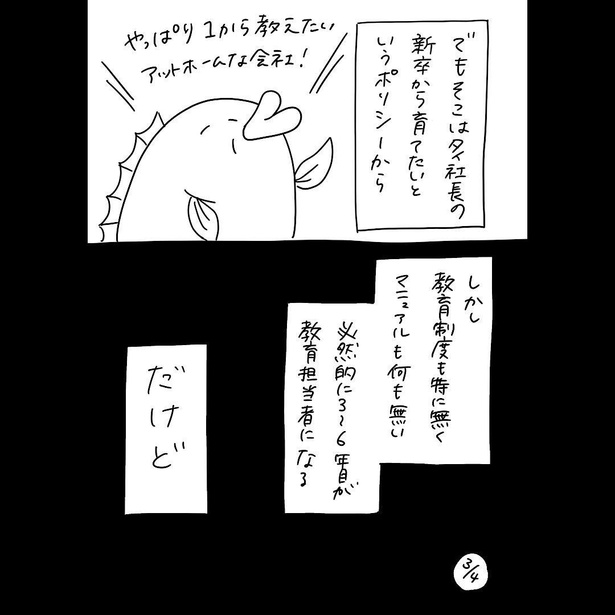 でもそこはタイ社長の
新卒から育てたいと
いうポリシーから
やっぱり1から教えたい
アットホームな会社!
しかし
教育制度も特に無く
マニュアルも何も無い
必然的に3~6年目が
教育担当者になる
だけど
3/4